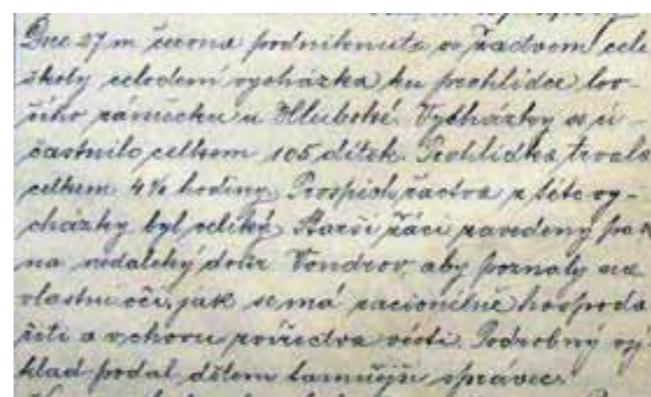 Dne 27 m června podniknuta se žactvem celé
školy celodení vycházka ku prohlídce lov-
čího zámečku u Hluboké. Vycházky se ú-
častnilo celkem 105 dítek. Prohlídka trvala
celkem 4½ hodiny. Prospěch žactva z této vy-
cházky byl veliký. Starší žáci zavedeny pak
na nedaleký dvůr Vondrov, aby poznaly na
vlastní oči, jak se má racionelně hospoda
řiti a v chovu zvířectva vésti. Podrobný vý-
klad podal dětem tamnější správce.